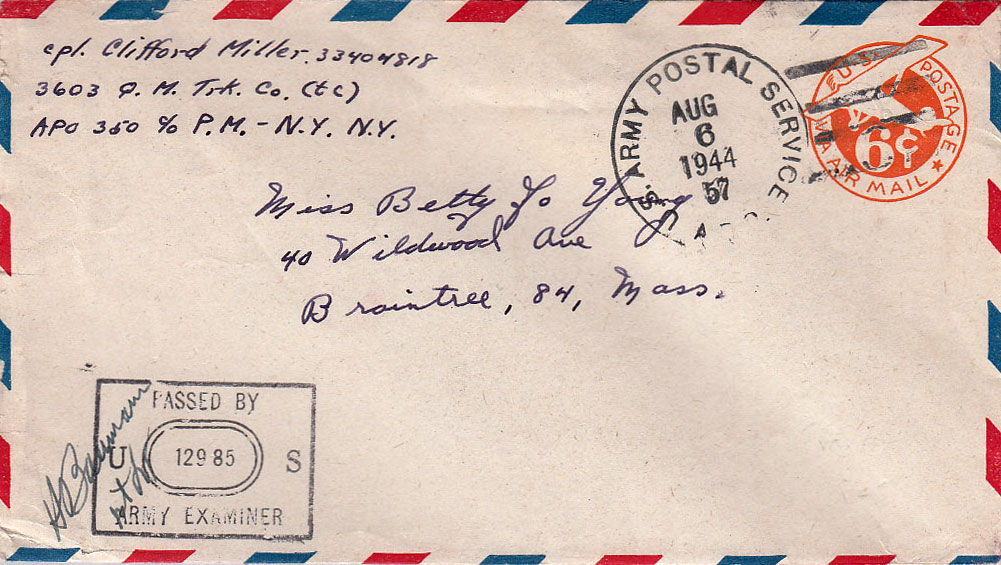 cpl. Clifford Miller 33404818
3603 Q. M. Trk. Co. (tc)
APO 350 c/o P.M. - N.Y. N.Y.
U.S. ARMY POSTAL SERVICE
AUG
6
1944
U.S. POSTAGE
6¢
VIA AIR MAIL
Miss Betty Jo Young
40 Wildwood Ave
Braintree, 84, Mass.
PASSED BY
U 12985 S
ARMY EXAMINER